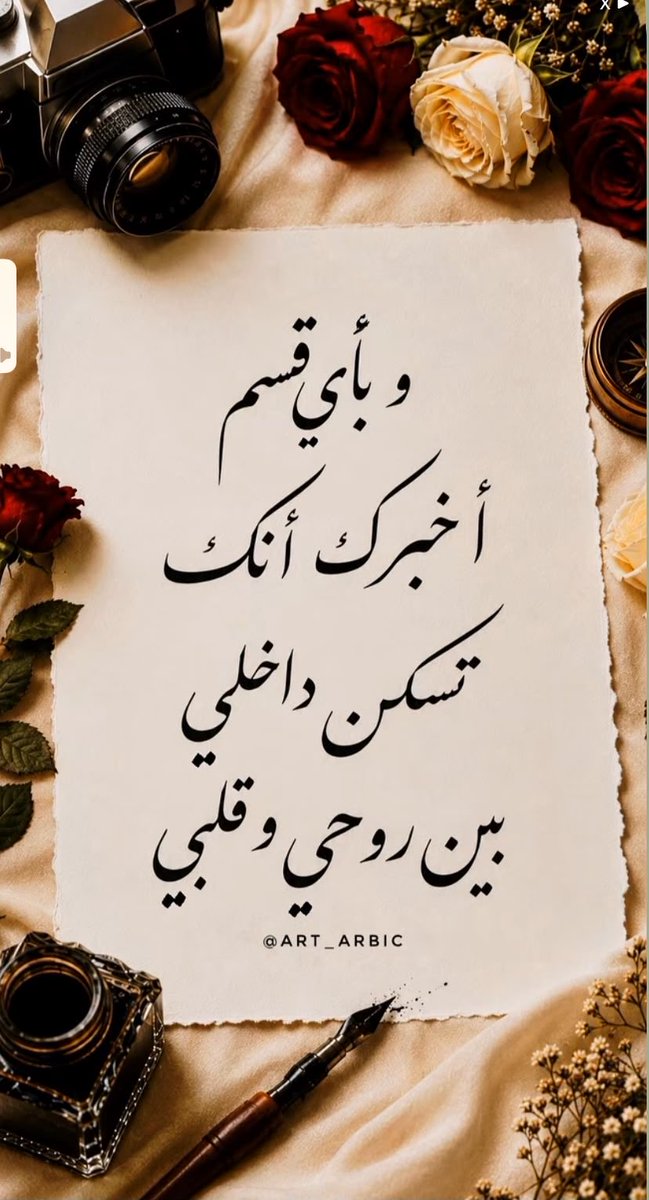 و بأي قسم
أخبرك أنك
تسكن داخلي
بين روحي و قلبي
@ART_ARBIC